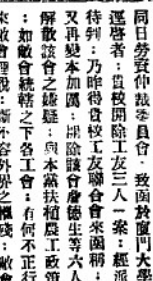 同日勞資仲裁委員會、致函於廈門大學
逕啓者：貴校開除工友三人一案：經派
待判：乃昨得貴校工友聯合會來函稱：
又再變本加厲：開除該會詹德生等六人
解散該會之嫌疑：與本黨扶植農工政策
：如敝會統轄之下各工會：有何不正行
來敝會理說：斷不容外界之摧殘：敝會